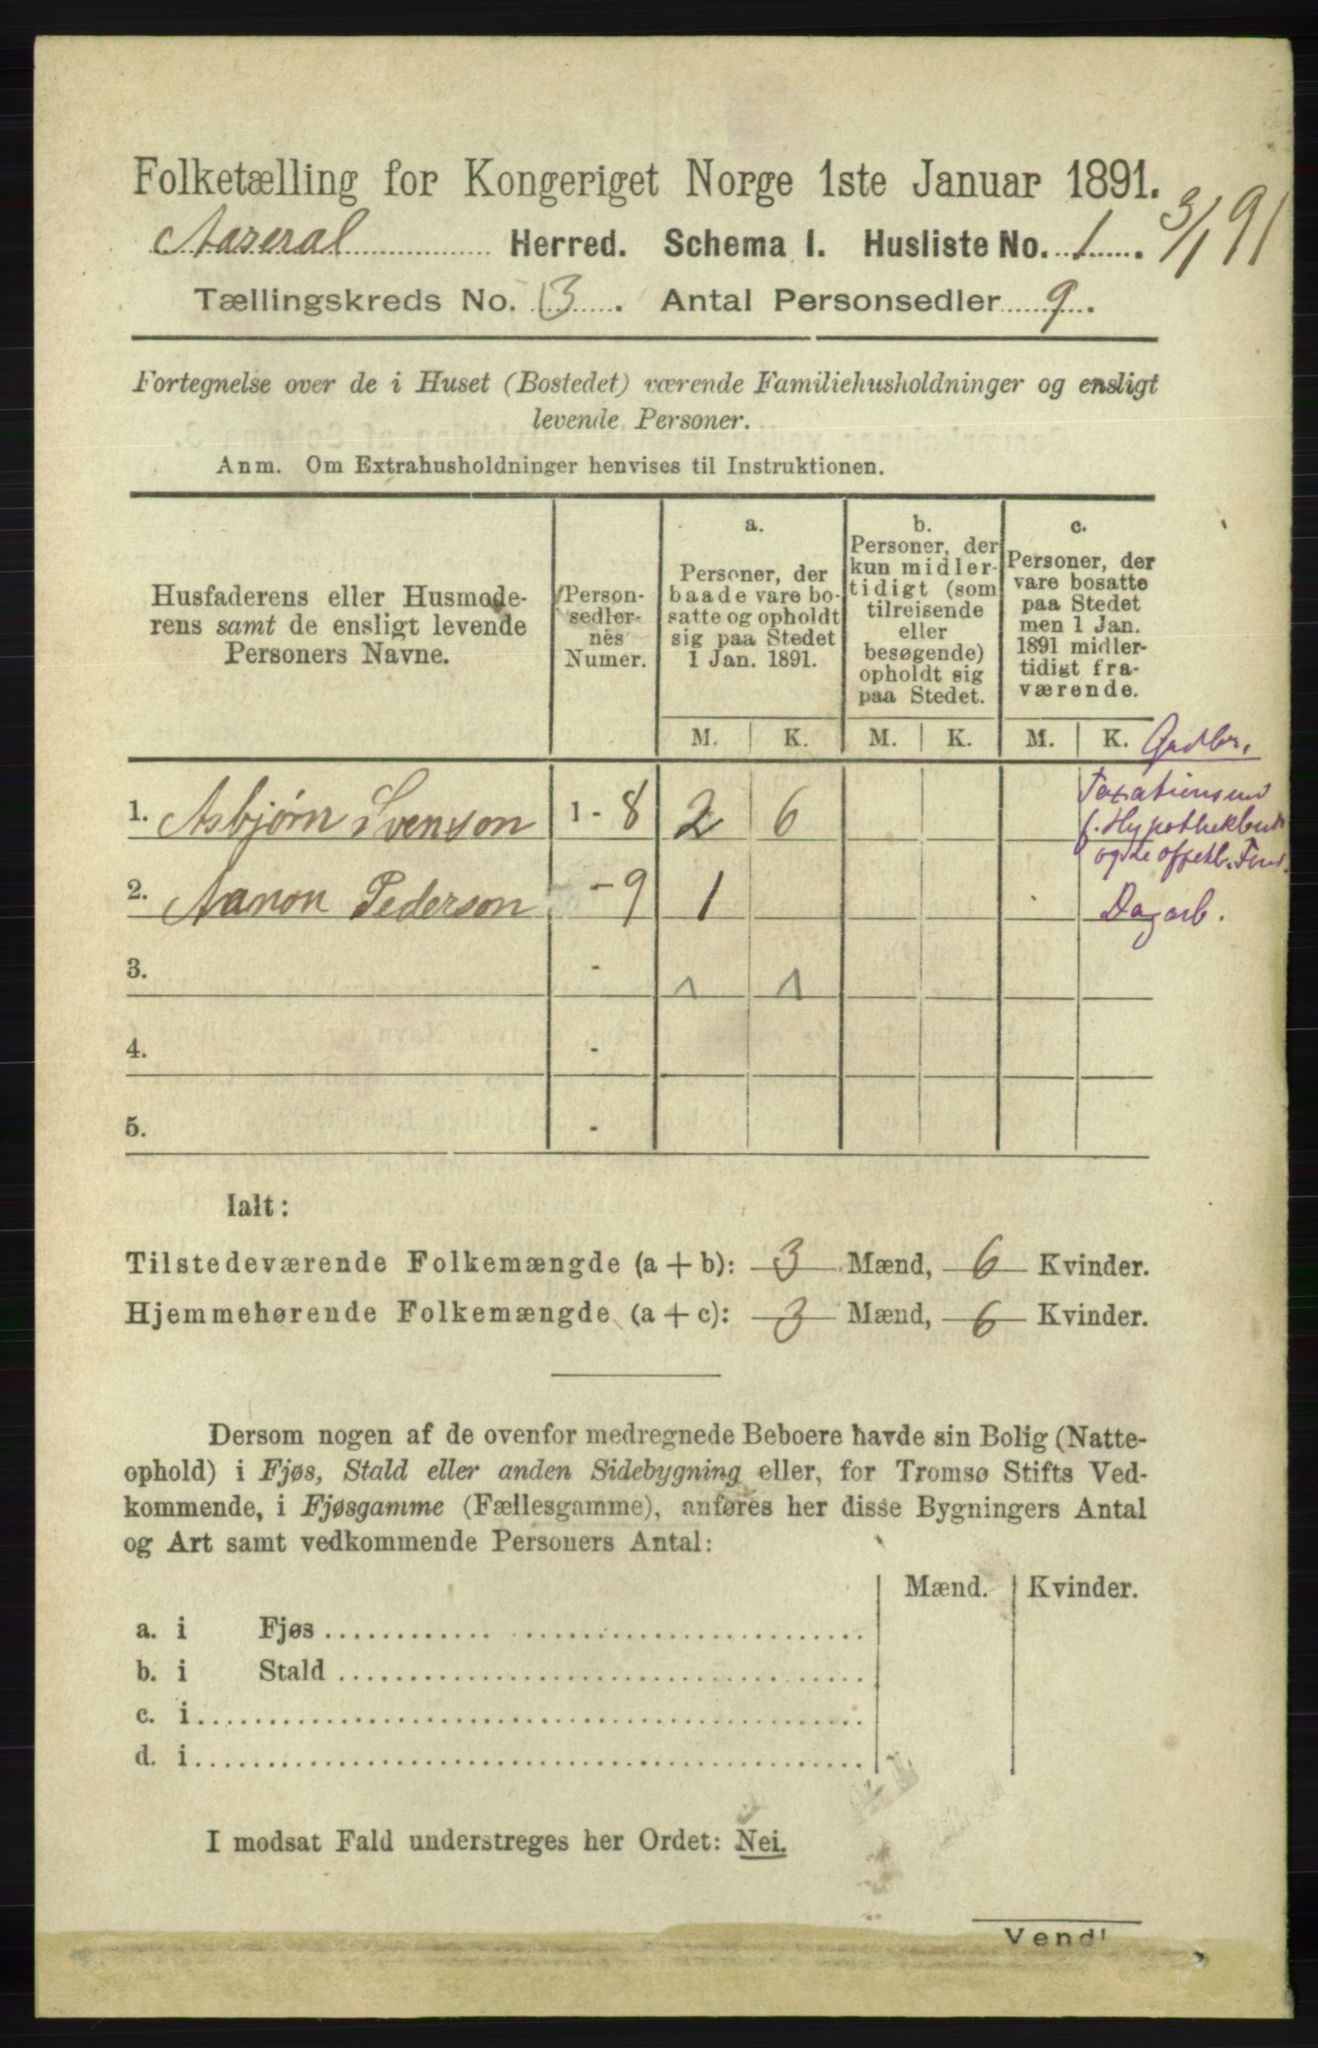 Folketælling for Kongeriget Norge 1ste Januar 1891.
Aaseral Herred. Schema I. Husliste No. 1. 3/1 91
Tællingskreds No. 3. Antal Personsedler 9.
Fortegnelse over de i Huset (Bostedet) værende Familiehusholdninger og ensligt
levende Personer.
Anm. Om Extrahusholdninger henvises til Instruktionen.
Husfaderens eller Husmode-
rens samt de ensligt levende
Personers Navne.
Person-
sedler-
nes
Numer.
a.
Personer, der
baade vare bo-
satte og opholdt
sig paa Stedet
1 Jan. 1891.
b.
Personer, der
kun midler-
tidigt (som
tilreisende
eller
besøgende)
opholdt sig
paa Stedet.
c.
Personer, der
vare bosatte
paa Stedet
men 1 Jan.
1891 midler-
tidigt fra-
værende.
M. K. M. K. M. K.
Gadbr.
1. Asbjørn Svenson 1 - 8 2 6
Taxationsmd
f. Hypothekbnk
og de offetl. Fnd.
2. Aanon Pederson - 9 1 Dagarb.
3. - 1 1
4. -
5. -
Ialt:
Tilstedeværende Folkemængde (a + b): 3 Mænd, 6 Kvinder.
Hjemmehørende Folkemængde (a + c): 3 Mænd, 6 Kvinder.
Dersom nogen af de ovenfor medregnede Beboere havde sin Bolig (Natte-
ophold) i Fjøs, Stald eller anden Sidebygning eller, for Tromsø Stifts Ved-
kommende, i Fjøsgamme (Fællesgamme), anføres her disse Bygningers Antal
og Art samt vedkommende Personers Antal:
Mænd. Kvinder.
a. i Fjøs
b. i Stald
c. i
d. i
I modsat Fald understreges her Ordet: Nei.
Vend!